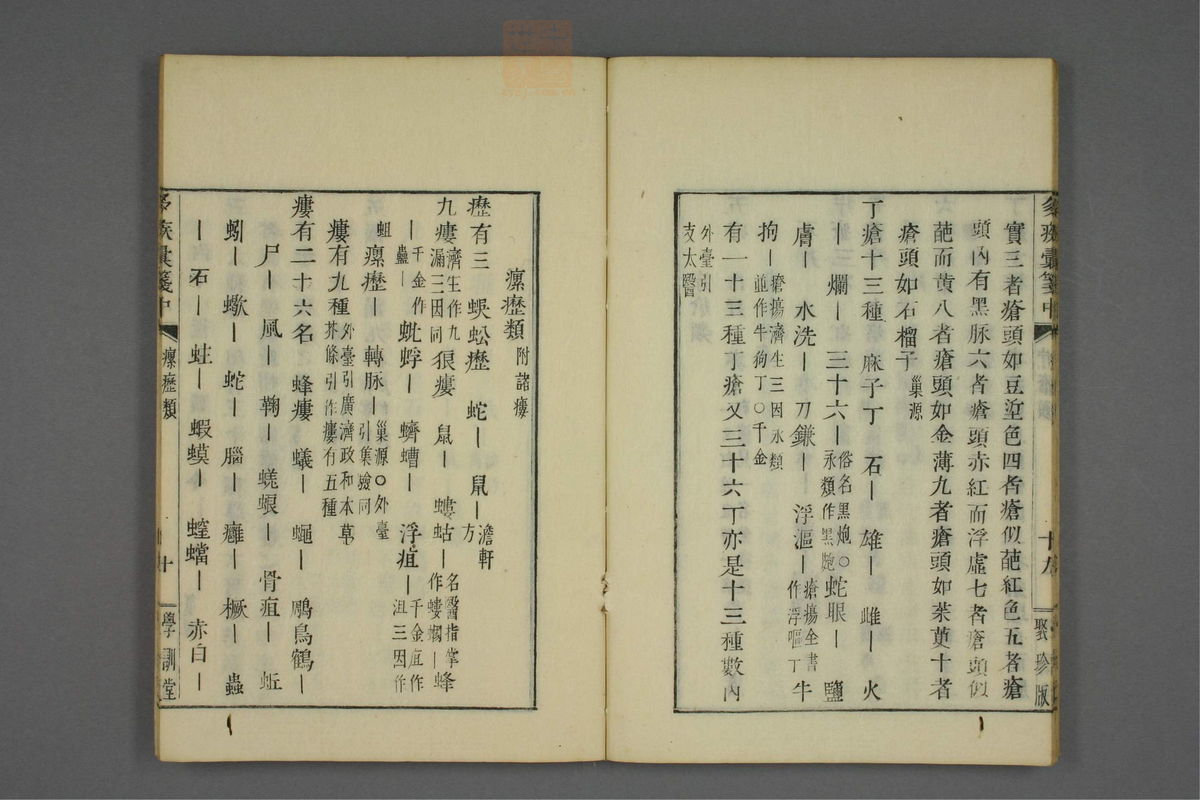 實三者瘡頭如豆塗色四者瘡似葩紅色五者瘡
頭內有黑脉六者瘡頭赤紅而浮虛七者瘡頭似
葩而黄八者瘡頭如金薄九者瘡頭如茱萸十者
瘡頭如石榴子巢源
丁瘡十三種 麻子丁 石｜ 雄｜ 雌｜ 火
｜ 爛｜ 三十六｜俗名黑炮○永類作黑皰 蛇眼｜ 鹽
膚｜ 水洗｜ 刀鎌｜ 浮漚｜瘡瘍全書作浮嘔丁 牛
拘｜瘡瘍濟生三因永類並作牛狗丁○千金
有一十三種丁瘡又三十六丁亦是十三種數內
外臺引支太醫
聚珍版
瘰癧類附諸瘻
癧有三 蜈蚣癧 蛇｜ 鼠｜澹軒方
九瘻濟生作九漏三因同 狼瘻 鼠｜ 螻蛄｜名醫指掌作螻蟈 蜂
｜千金作蠭｜ 蚍蜉｜ 蠐螬｜ 浮疽｜千金疽作沮三因作
蛆 瘰癧｜ 轉脉｜巢源○外臺引集驗同
瘻有九種外臺引廣濟政和本草芥條引作瘻有五種
瘻有二十六名 蜂瘻 蟻｜ 蠅｜ 鵰鳥鶴｜
尸｜ 風｜ 鞠｜ 蜣蜋｜ 骨疽｜ 蚯
蚓｜ 蠍｜ 蛇｜ 腦｜ 癰｜ 橛｜ 蟲
｜ 石｜ 蛀｜ 蝦蟆｜ 螳蟷｜ 赤白｜
瘰癧類
十
學訓堂